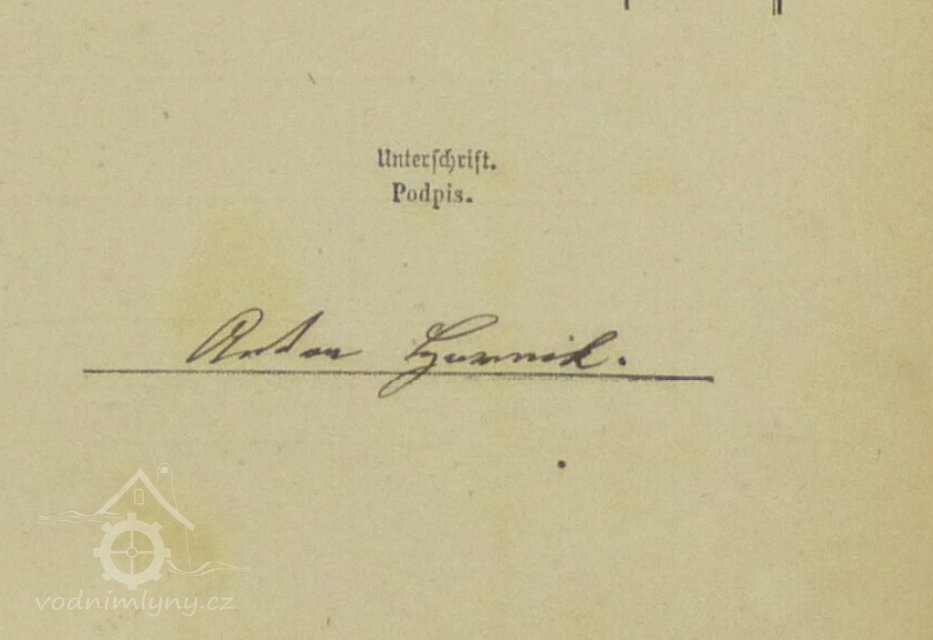 Unterschrift.
Podpis.
Anton Hurnik.
vodnimlyny.cz